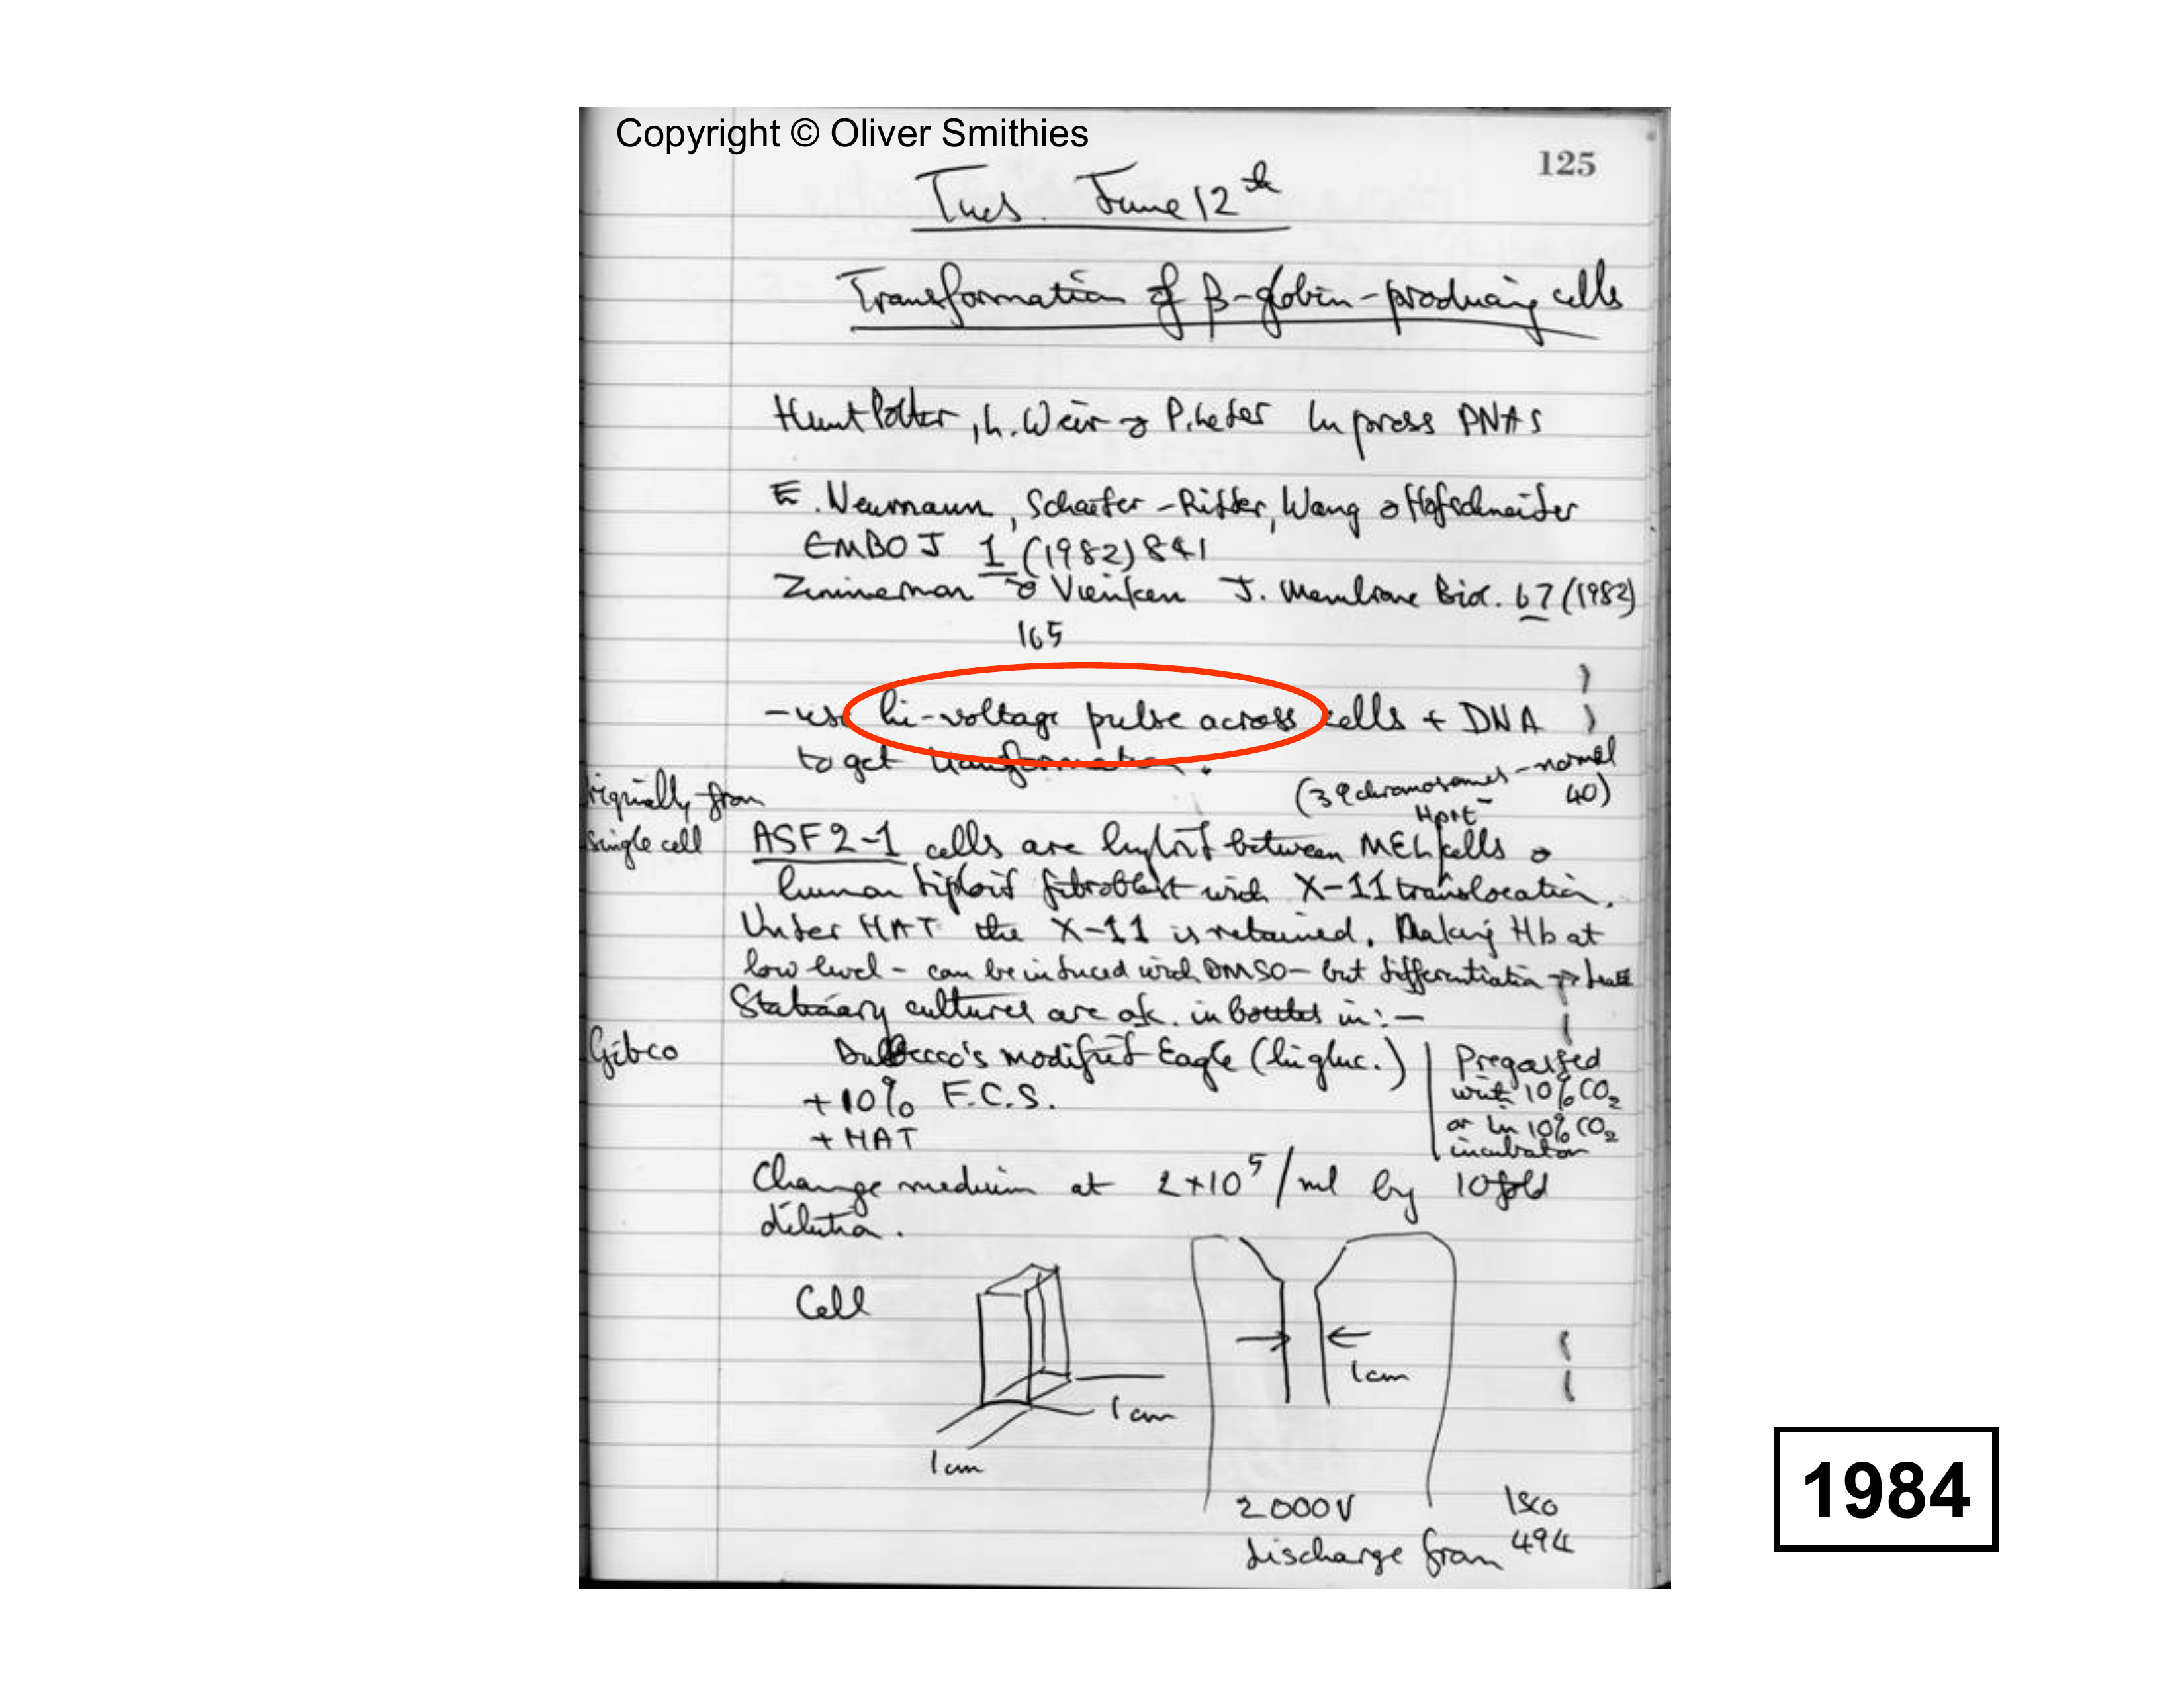 Copyright © Oliver Smithies
125
Tues. June 12th
Transformation of β-globin-producing cells
Hunt Potter, L. Weir & P. Leder In press PNAS
E. Neumann, Schaefer-Ridder, Wang & Hofschneider
EMBO J 1 (1982) 841
Zimmerman & Vienken J. Membrane Biol. 67 (1982)
165
- use hi-voltage pulse across cells + DNA
to get transformation.
(39 chromosomes - normal
40)
riginally from
single cell
Hprt-
ASF2-1 cells are hybrid between MEL cells &
human diploid fibroblast with X-11 translocation.
Under HAT the X-11 is retained. Making Hb at
low level - can be induced with DMSO - but differentiation →
Stationary cultures are ok. in bottles in:-
Gibco
Dulbecco's modified Eagle (hi gluc.)
+10% F.C.S.
+ HAT
Pregassed
with 10% CO2
or in 10% CO2
incubator
Change medium at 2×10^5/ml by 10 fold
dilution.
Cell
1 cm
1 cm
1 cm
2000V
discharge from
Isco
494
1984